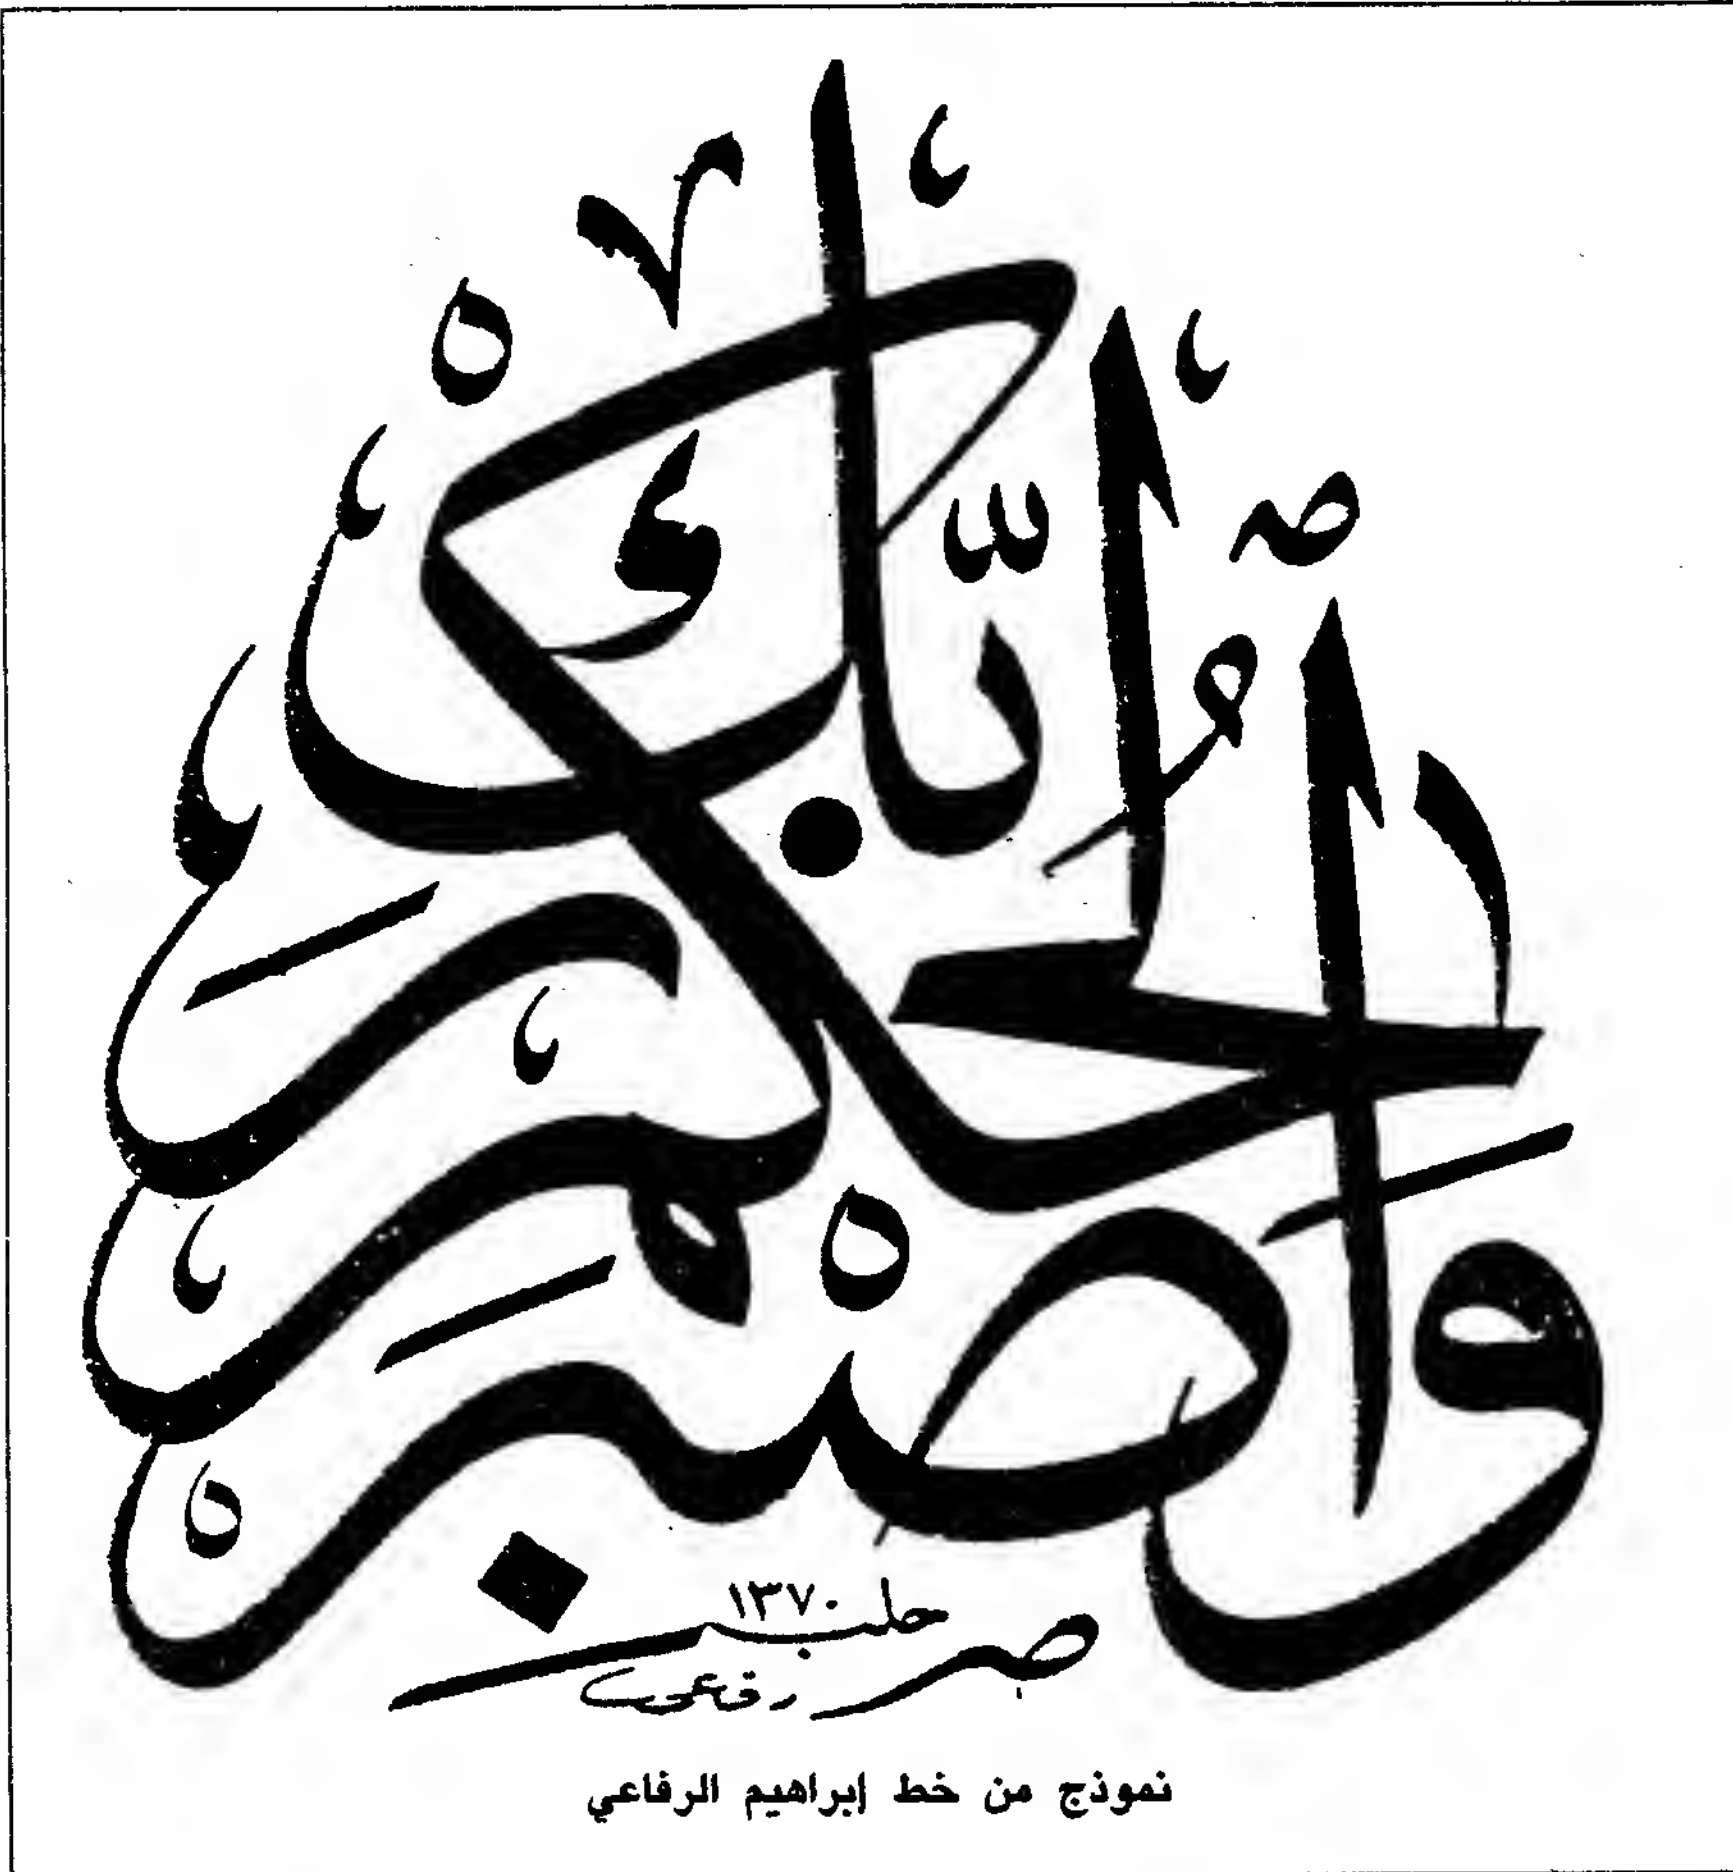 واصبر لحكم ربك
حلب ١٣٧٠
نموذج من خط إبراهيم الرفاعي